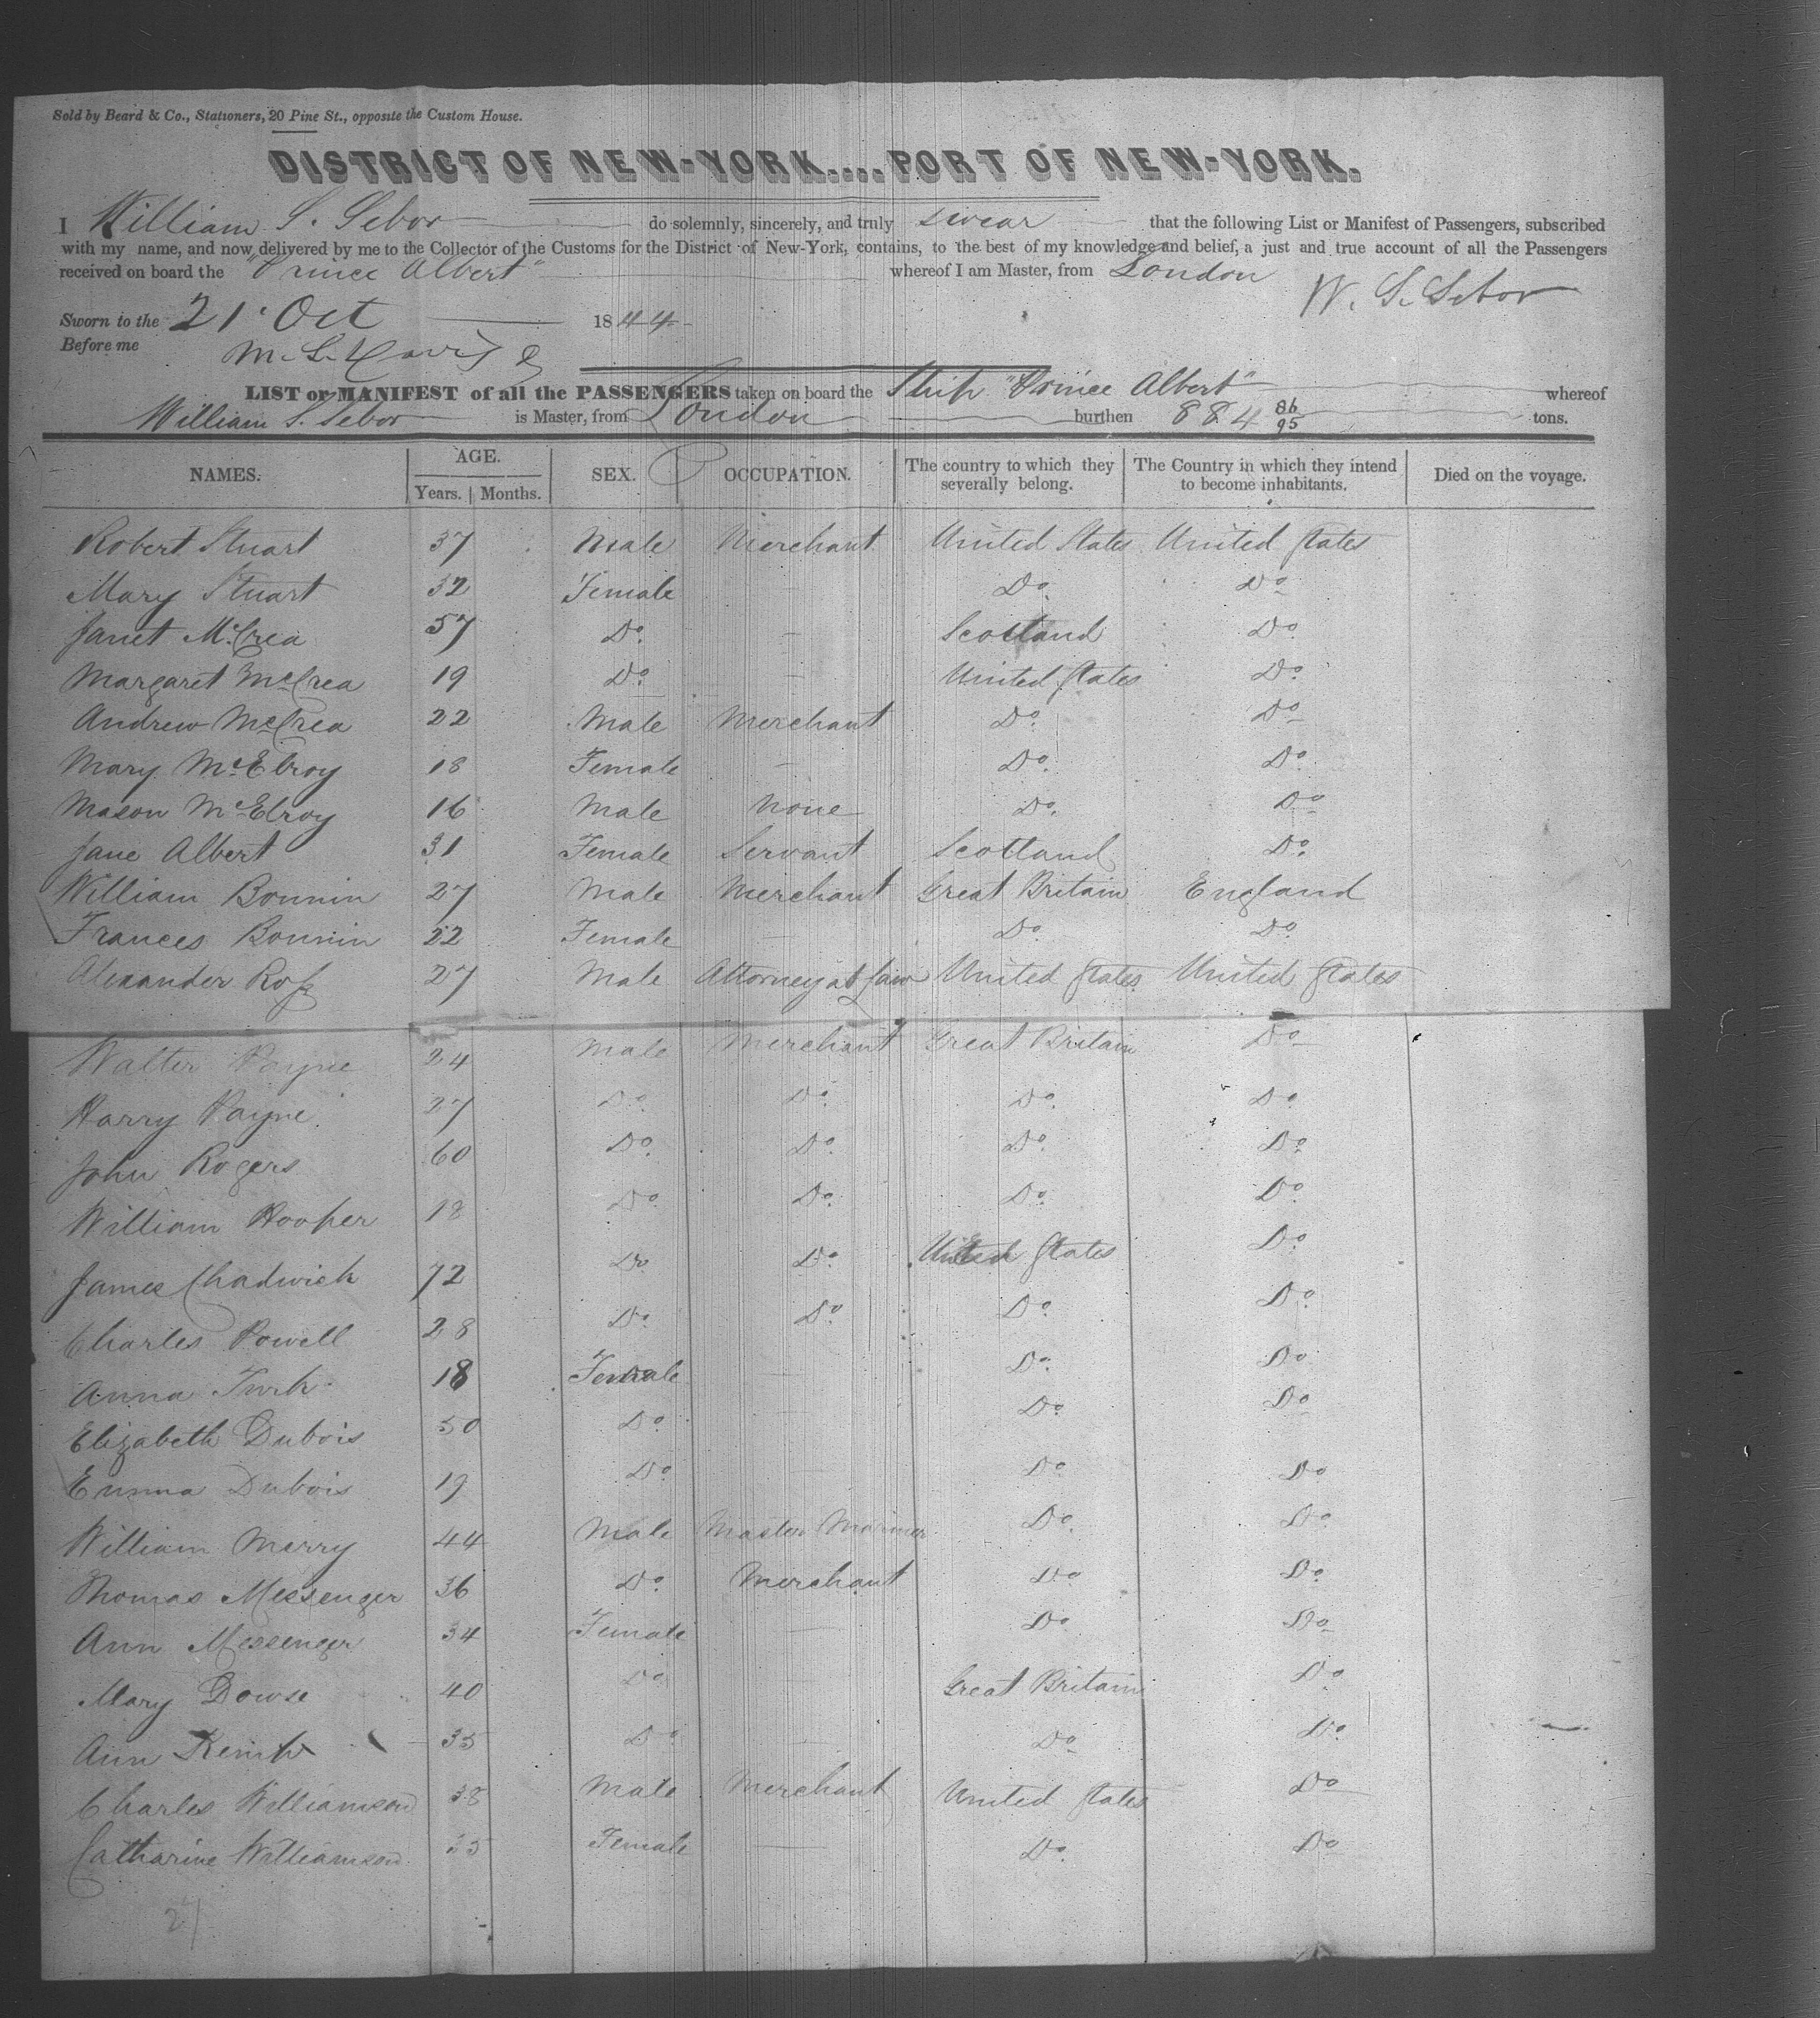 Sold by Beard & Co., Stationers, 20 Pine St., opposite the Custom House.
DISTRICT OF NEW-YORK....PORT OF NEW-YORK.
I William S. Sebor do solemnly, sincerely, and truly swear that the following List or Manifest of Passengers, subscribed
with my name, and now delivered by me to the Collector of the Customs for the District of New-York, contains, to the best of my knowledge and belief, a just and true account of all the Passengers
received on board the "Prince Albert" whereof I am Master, from London
W. S. Sebor
Sworn to the 21 Oct 1844
Before me M. L. Davis
LIST or MANIFEST of all the PASSENGERS taken on board the Ship "Prince Albert" whereof
William S. Sebor is Master, from London burthen 884 86/95 tons.
NAMES. AGE. Years. Months. SEX. OCCUPATION. The country to which they severally belong. The Country in which they intend to become inhabitants. Died on the voyage.
Robert Stuart 37 Male Merchant United States United States
Mary Stuart 32 Female Do. Do.
Janet McCrea 57 Do. - Scotland Do.
Margaret McCrea 19 Do. - United States Do.
Andrew McCrea 22 Male Merchant Do. Do.
Mary McElroy 18 Female - Do. Do.
Mason McElroy 16 Male None Do. Do.
Jane Albert 31 Female Servant Scotland Do.
William Bonnin 27 Male Merchant Great Britain England
Frances Bonnin 22 Female - Do. Do.
Alexander Ross 27 Male Attorney at Law United States United States
Walter Payne 24 Male Merchant Great Britain Do.
Harry Payne 27 Do. Do. Do. Do.
John Rogers 60 Do. Do. Do. Do.
William Hooper 18 Do. Do. Do. Do.
James Chadwick 72 Do. Do. United States Do.
Charles Powell 28 Do. Do. Do. Do.
Anna Turk 18 Female - Do. Do.
Elizabeth Dubois 50 Do. - Do. Do.
Emma Dubois 19 Do. - Do. Do.
William Merry 44 Male Master Mariner Do. Do.
Thomas Messenger 36 Do. Merchant Do. Do.
Ann Messenger 34 Female - Do. Do.
Mary Dowse 40 Do. - Great Britain Do.
Ann Kemp 35 Do. - Do. Do.
Charles Williamson 38 Male Merchant United States Do.
Catharine Williamson 35 Female - Do. Do.
27